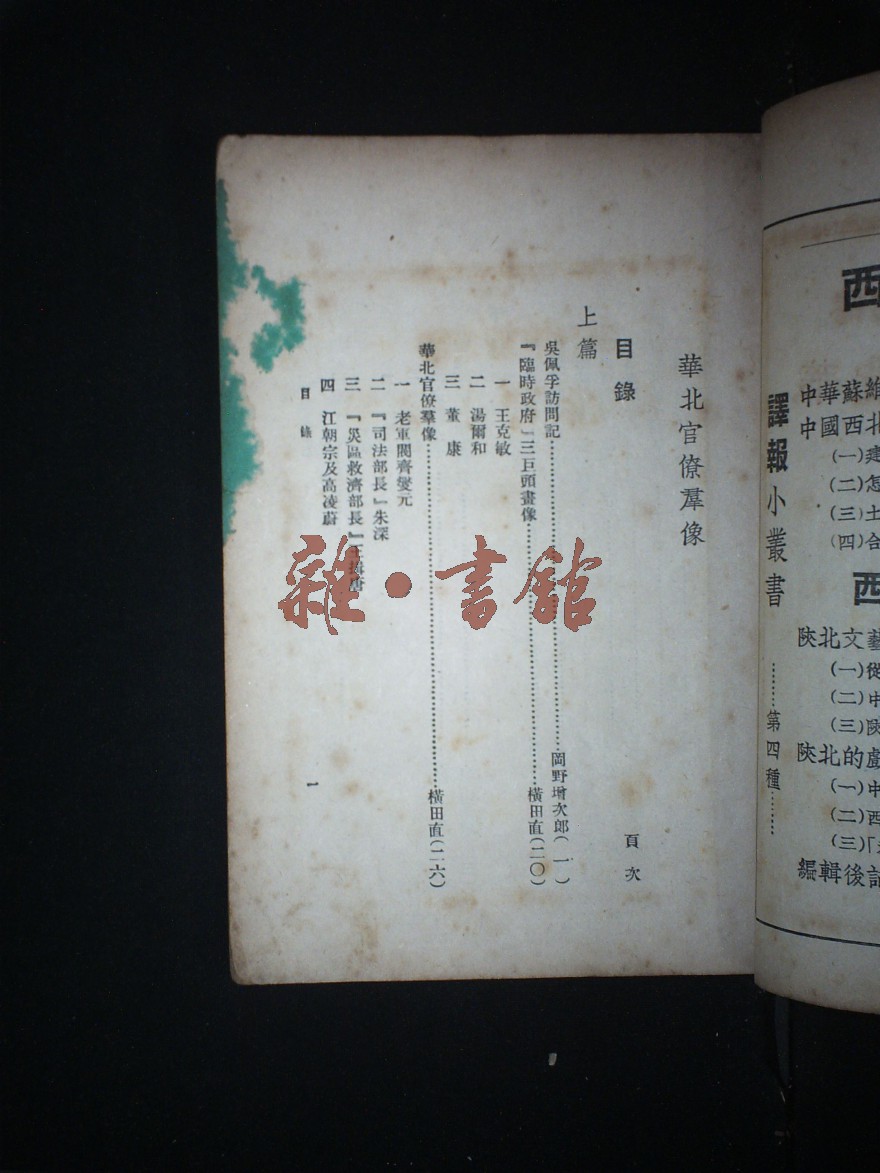 華北官僚羣像
目錄
頁次
上篇
吳佩孚訪問記……岡野增次郎(一)
『臨時政府』三巨頭畫像……橫田直(二〇)
一 王克敏
二 湯爾和
三 董康
華北官僚羣像……橫田直(二六)
一 老軍閥齊燮元
二 『司法部長』朱深
三 『災區救濟部長』王
四 江朝宗及高凌蔚
目錄
一
雜·書館
西
中華蘇維
中國西北
(一)建
(二)怎
(三)土
(四)合
譯報小叢書……第四種……
西
陝北文藝
(一)從
(二)中
(三)陝
陝北的戲
(一)中
(二)西
(三)「
編輯後記